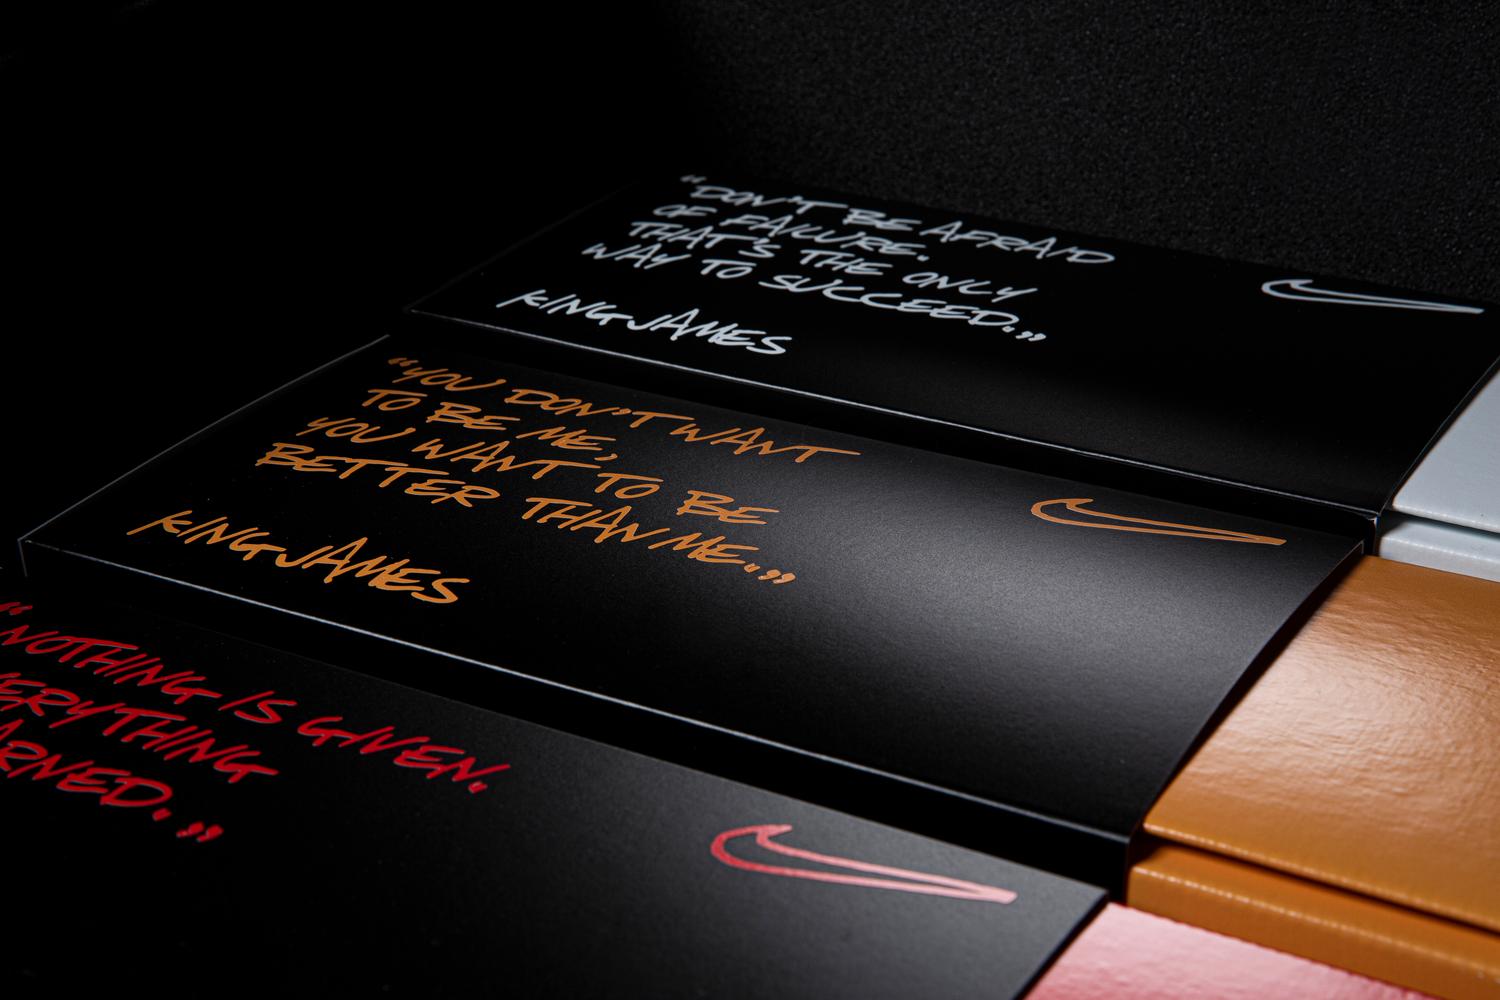 "DON'T BE AFRAID
OF FAILURE.
THAT'S THE ONLY
WAY TO SUCCEED."
KINGJAMES
"YOU DON'T WANT
TO BE ME,
YOU WANT TO BE
BETTER THAN ME."
KINGJAMES
"NOTHING IS GIVEN.